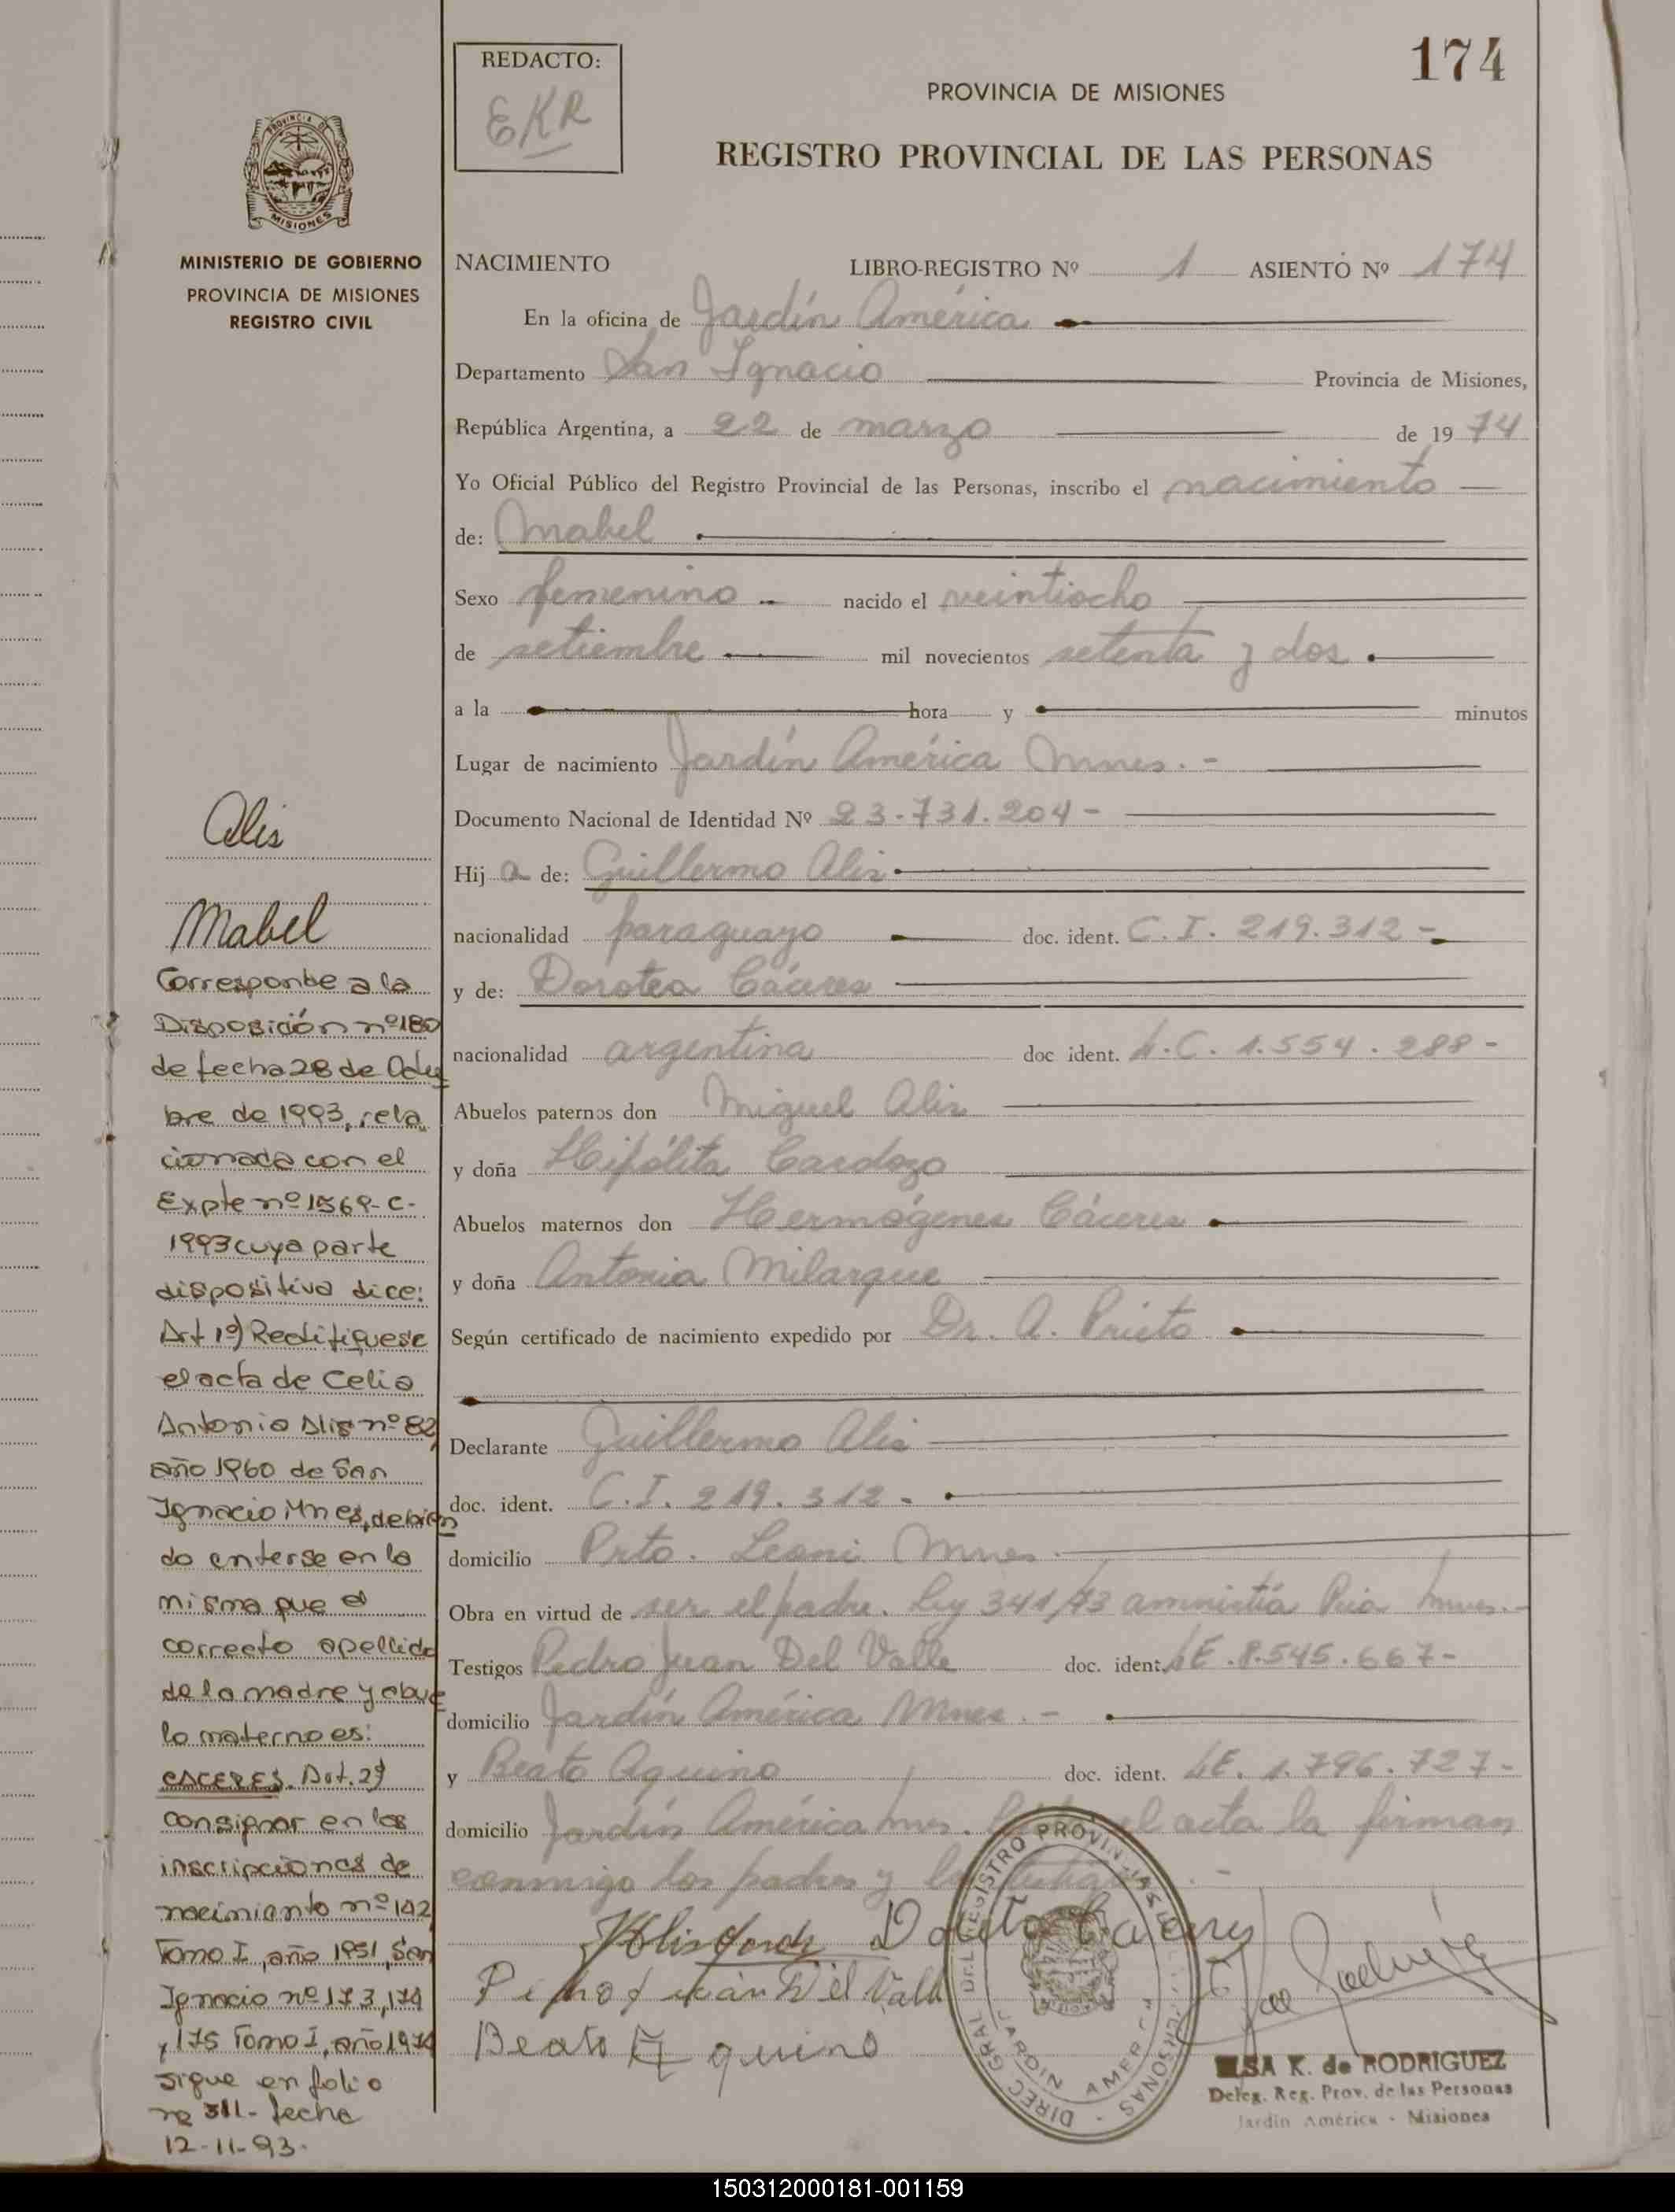 174
REDACTO:
EKR
PROVINCIA DE MISIONES
REGISTRO PROVINCIAL DE LAS PERSONAS
PROVINCIA DE
MISIONES
MINISTERIO DE GOBIERNO
PROVINCIA DE MISIONES
REGISTRO CIVIL
NACIMIENTO LIBRO-REGISTRO Nº 1 ASIENTO Nº 174
En la oficina de Jardín América
Departamento San Ignacio Provincia de Misiones,
República Argentina, a 22 de marzo de 1974
Yo Oficial Público del Registro Provincial de las Personas, inscribo el nacimiento
de: Mabel
Sexo femenino nacido el veintiocho
de setiembre mil novecientos setenta y dos.
a la hora y minutos
Lugar de nacimiento Jardín América Mnes. -
Documento Nacional de Identidad Nº 23.731.204 -
Hij a de: Guillermo Alis
nacionalidad paraguayo doc. ident. C.I. 219.312 -
y de: Dorotea Cáceres
nacionalidad argentina doc ident. L.C. 1.554.288 -
Abuelos paternos don Miguel Alis
y doña Hipólita Cardozo
Abuelos maternos don Hermógenes Cáceres
y doña Antonia Milarque
Según certificado de nacimiento expedido por Dr. A. Prieto
Declarante Guillermo Alis
doc. ident. C.I. 219.312 -
domicilio Prto. Leoni Mnes.
Obra en virtud de ser el padre. Ley 341/73 amnistía Pcia Mnes. -
Testigos Pedro Juan Del Valle doc. ident. LE. 8.545.667 -
domicilio Jardín América Mnes. -
y Beato Aquino doc. ident. LE. 1.796.727 -
domicilio Jardín América Mnes. el acta la firman
conmigo los padres y los testigos. -
Alis
Mabel
Corresponde a la
Disposición nº 180
de fecha 28 de Octu
bre de 1993, rela
cionada con el
Expte nº 1569-C-
1993 cuya parte
dispositiva dice:
Art 1º) Rectifiquese
el acta de Celia
Antonia Alis nº 82
año 1960 de San
Ignacio Mnes, debien
do enterse en la
misma que el
correcto apellido
de la madre y abue
lo materno es:
CACERES. Art. 2º)
consignar en las
inscripciones de
nacimiento nº 142
Tomo I, año 1951, San
Ignacio nº 173, 174
y 175 Tomo I, año 1974
sigue en folio
nº 311- fecha
12-11-93.
Beato Aquino
JARDIN AMERICA
ELSA K. de RODRIGUEZ
Deleg. Reg. Prov. de las Personas
Jardín América - Misiones
150312000181-001159